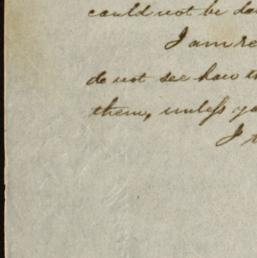 could not be do
I am re
do not see how th
them, unless yo
I t